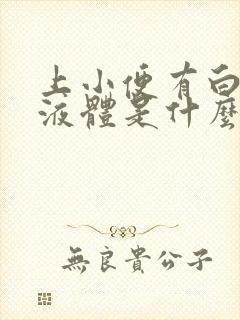 上小便有白
液體是什麼
無良貴公子